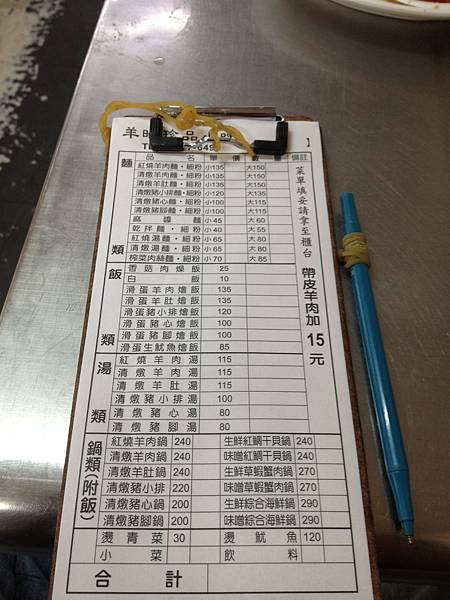 羊 珍品
649
品名 單價 數 備註
麵類
紅燒羊肉麵・細粉 小135 大150
清燉羊肉麵・細粉 小135 大150
清燉羊肚麵・細粉 小135 大150
清燉豬小排麵・細粉 小120 大135
清燉豬心麵・細粉 小100 大115
清燉豬腳麵・細粉 小100 大115
麻醬麵 小45 大60
乾拌麵・細粉 小40 大55
紅燒湯麵・細粉 小65 大80
清燉湯麵・細粉 小65 大80
榨菜肉絲麵・細粉 小70 大85
飯類
香菇肉燥飯 25
白飯 10
滑蛋羊肉燴飯 135
滑蛋羊肚燴飯 135
滑蛋豬小排燴飯 120
滑蛋豬心燴飯 100
滑蛋豬腳燴飯 100
滑蛋生魷魚燴飯 85
湯類
紅燒羊肉湯 115
清燉羊肉湯 115
清燉羊肚湯 115
清燉豬小排湯 100
清燉豬心湯 80
清燉豬腳湯 80
菜單填妥請拿至櫃台
帶皮羊肉加15元
鍋類(附飯)
紅燒羊肉鍋 240 生鮮紅鯛干貝鍋 240
清燉羊肉鍋 240 味噌紅鯛干貝鍋 240
清燉羊肚鍋 240 生鮮草蝦蟹肉鍋 270
清燉豬小排 220 味噌草蝦蟹肉鍋 270
清燉豬心鍋 200 生鮮綜合海鮮鍋 290
清燉豬腳鍋 200 味噌綜合海鮮鍋 290
燙青菜 30 燙魷魚 120
小菜 飲料
合計